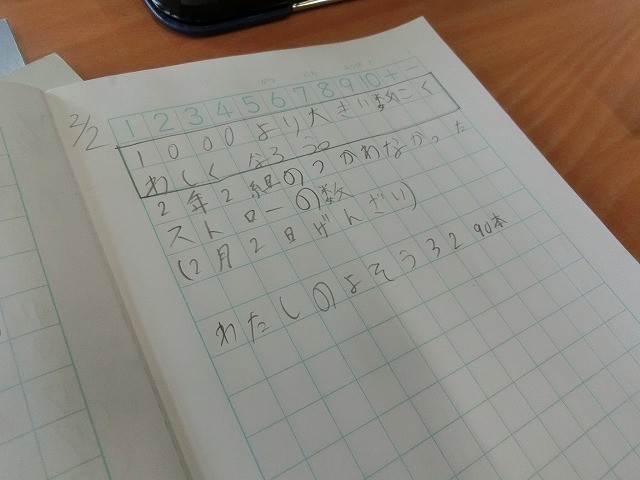 2/2
1 2 3 4 5 6 7 8 9 10 + −
1000より大きい数にく
わしくなろう
2年2組のつかわなかった
ストローの数
(2月2日げんざい)
わたしのよそう3290本